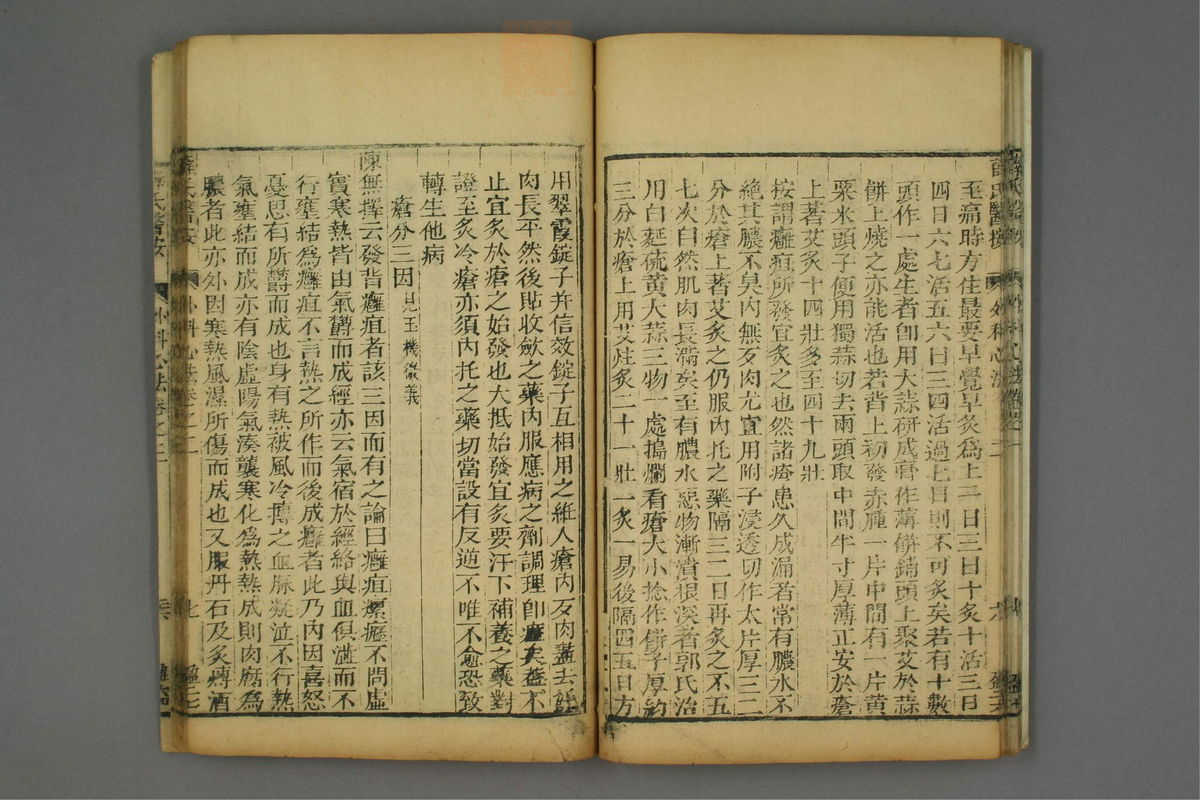 至痛時方住最要早覺早灸爲上一日三日十灸十活三日
四日六七活五六日三四活過七日則不可灸矣若有十數
頭作一處生者卽用大蒜硏成膏作薄餅鋪頭上聚艾於蒜
餅上燒之亦能活也若背上初發赤腫一片中間有一片黃
粟米頭子便用獨蒜切去兩頭取中間半寸厚薄正安於瘡
上著艾灸十四壯多至四十九壯
按謂癰疽所發宜灸之也然諸瘡患久成漏者常有膿水不
絶其膿不臭內無歹肉尤宜用附子浸透切作大片厚三二
分於瘡上著艾灸之仍服內托之藥隔三二日再灸之不五
七次自然肌肉長滿矣至有膿水惡物漸潰根深者郭氏治
用白麵硫黃大蒜三物一處搗爛看瘡大小捻作餅子厚約
三分於瘡上用艾炷灸二十一壯一灸一易後隔四五日方
用翠霞錠子幷信效錠子互相用之維人瘡內歹肉盡去
肉長平然後貼收斂之藥內服應病之劑調理卽瘥矣蓋不
止宜灸於瘡之始發也大抵始發宜灸要汗下補養之藥對
證至灸冷瘡亦須內托之藥切當設有反逆不唯不愈恐致
轉生他病
瘡分三因 見玉機微義
陳無擇云發背癰疽者該三因而有之論曰癰疽瘰癧不問虛
實寒熱皆由氣鬱而成經亦云氣宿於經絡與血俱濇而不
行壅結爲癰疽不言熱之所作而後成癰者此乃內因喜怒
憂思有所鬱而成也身有熱被風冷搏之血脉凝泣不行熱
氣壅結而成亦有陰虛陽氣湊襲寒化爲熱熱成則肉腐爲
膿者此亦外因寒熱風濕所傷而成也又服丹石及炙煿酒
薛氏醫按 外科心法卷之二